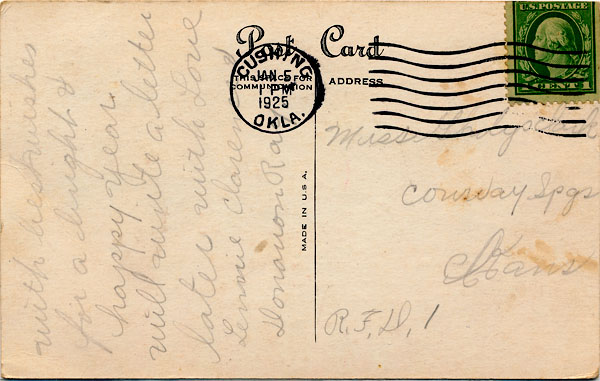 Post Card
THIS SPACE FOR
COMMUNICATION
ADDRESS
CUSHING
JAN 5
1 PM
1925
OKLA.
U.S. POSTAGE
CENTS
MADE IN U.S.A.
with best wishes
for a bright &
happy year
will write a letter
later with love
Lennie Clarence
Donavon Ray
Miss
Conway Spgs
Kans
R.F.D. 1